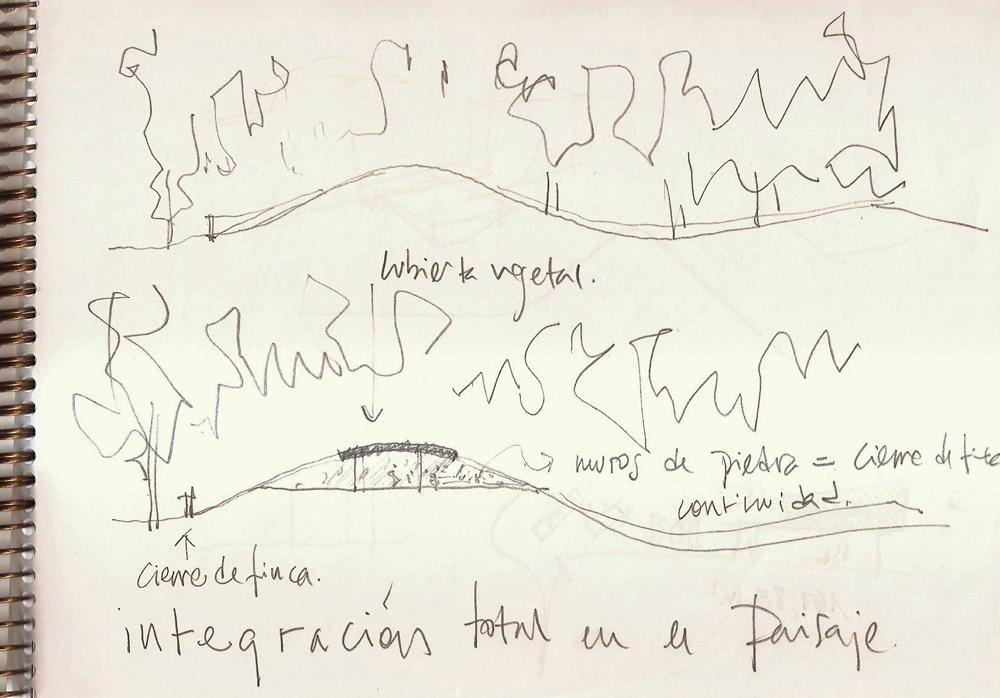 cubierta vegetal.
muros de piedra = cierre de finca
continuidad.
cierre de finca.
integración total en el paisaje.